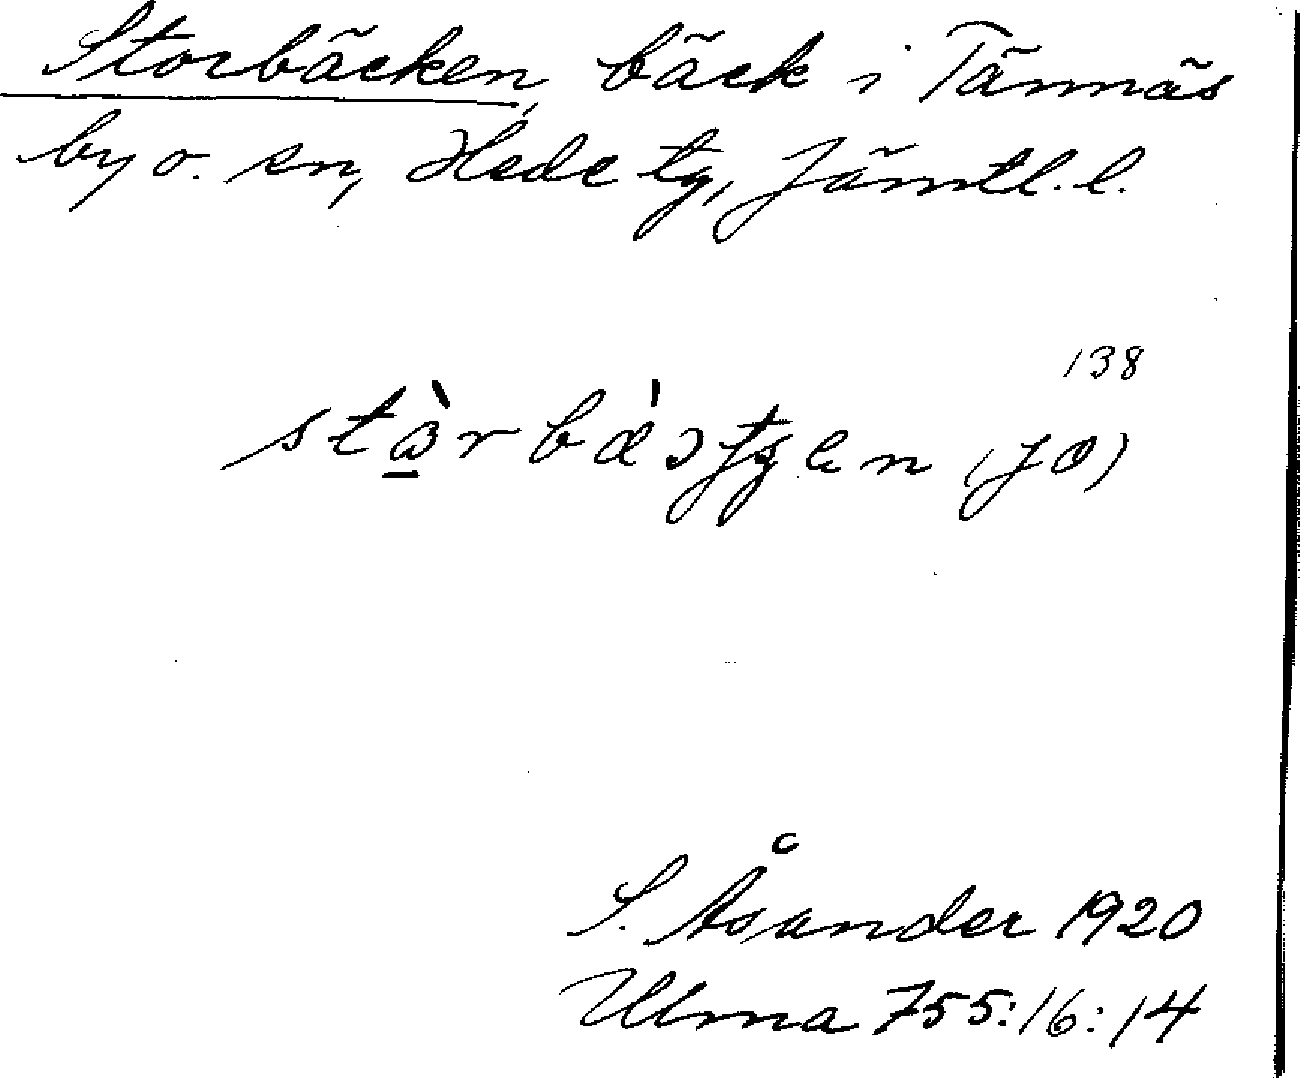 Storbäcken, bäck i Tännäs
by o. sn, Hede tg, Jämtl. l.
138
(JO)
S. Åsander 1920
Ulma 755:16:14